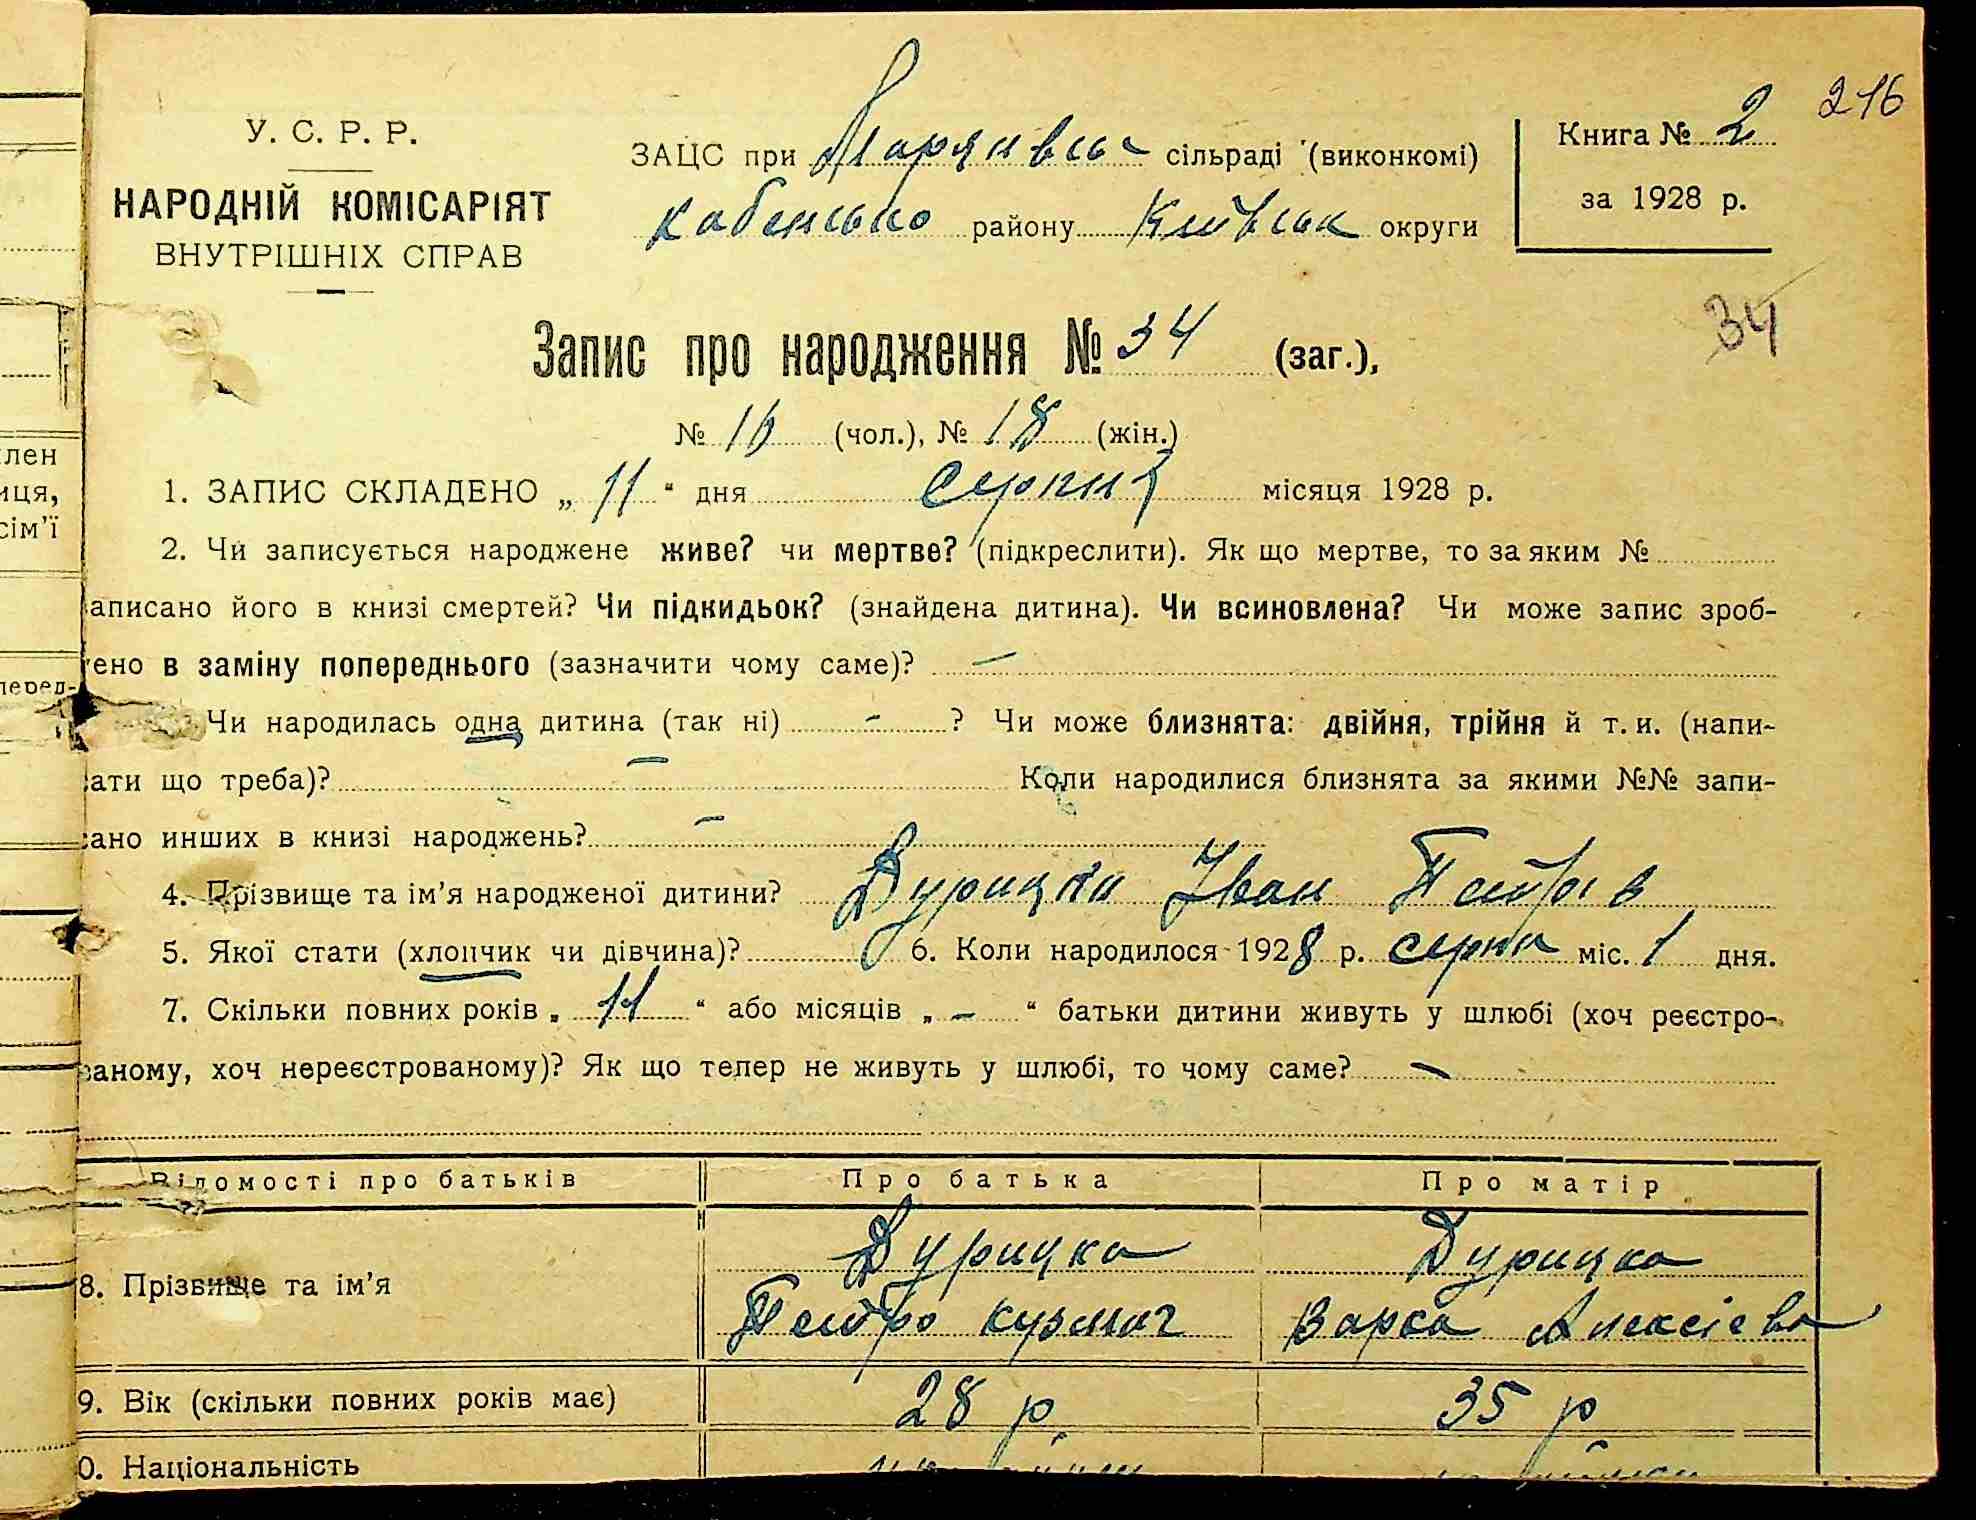 216
У. С. Р. Р.
НАРОДНІЙ КОМІСАРІЯТ
ВНУТРІШНІХ СПРАВ
ЗАЦС при Марянвсь сільраді (виконкомі)
кабенсько району Київськ округи
Книга № 2
за 1928 р.
34
Запис про народження № 34 (заг.),
№ 16 (чол.), № 18 (жін.)
1. ЗАПИС СКЛАДЕНО „ 11 “ дня серпня місяця 1928 р.
2. Чи записується народжене живе? чи мертве? (підкреслити). Як що мертве, то за яким №
аписано його в книзі смертей? Чи підкидьок? (знайдена дитина). Чи всиновлена? Чи може запис зроб-
ено в заміну попереднього (зазначити чому саме)? —
Чи народилась одна дитина (так ні) - ? Чи може близнята: двійня, трійня й т. и. (напи-
ати що треба)? — Коли народилися близнята за якими №№ запи-
сано инших в книзі народжень? —
4. Прізвище та ім’я народженої дитини? Дурицки Іван Петров
5. Якої стати (хлопчик чи дівчина)? 6. Коли народилося 1928 р. серпн міс. 1 дня.
7. Скільки повних років „ 11 “ або місяців „ - “ батьки дитини живуть у шлюбі (хоч реєстро-
ваному, хоч нереєстрованому)? Як що тепер не живуть у шлюбі, то чому саме? —
Відомості про батьків Про батька Про матір
8. Прізвище та ім’я Дурицка Дурицка
Петро кузмич Варка Алексієва
9. Вік (скільки повних років має) 28 р 35 р
0. Національність
лен
иця,
сім’ї
перед-